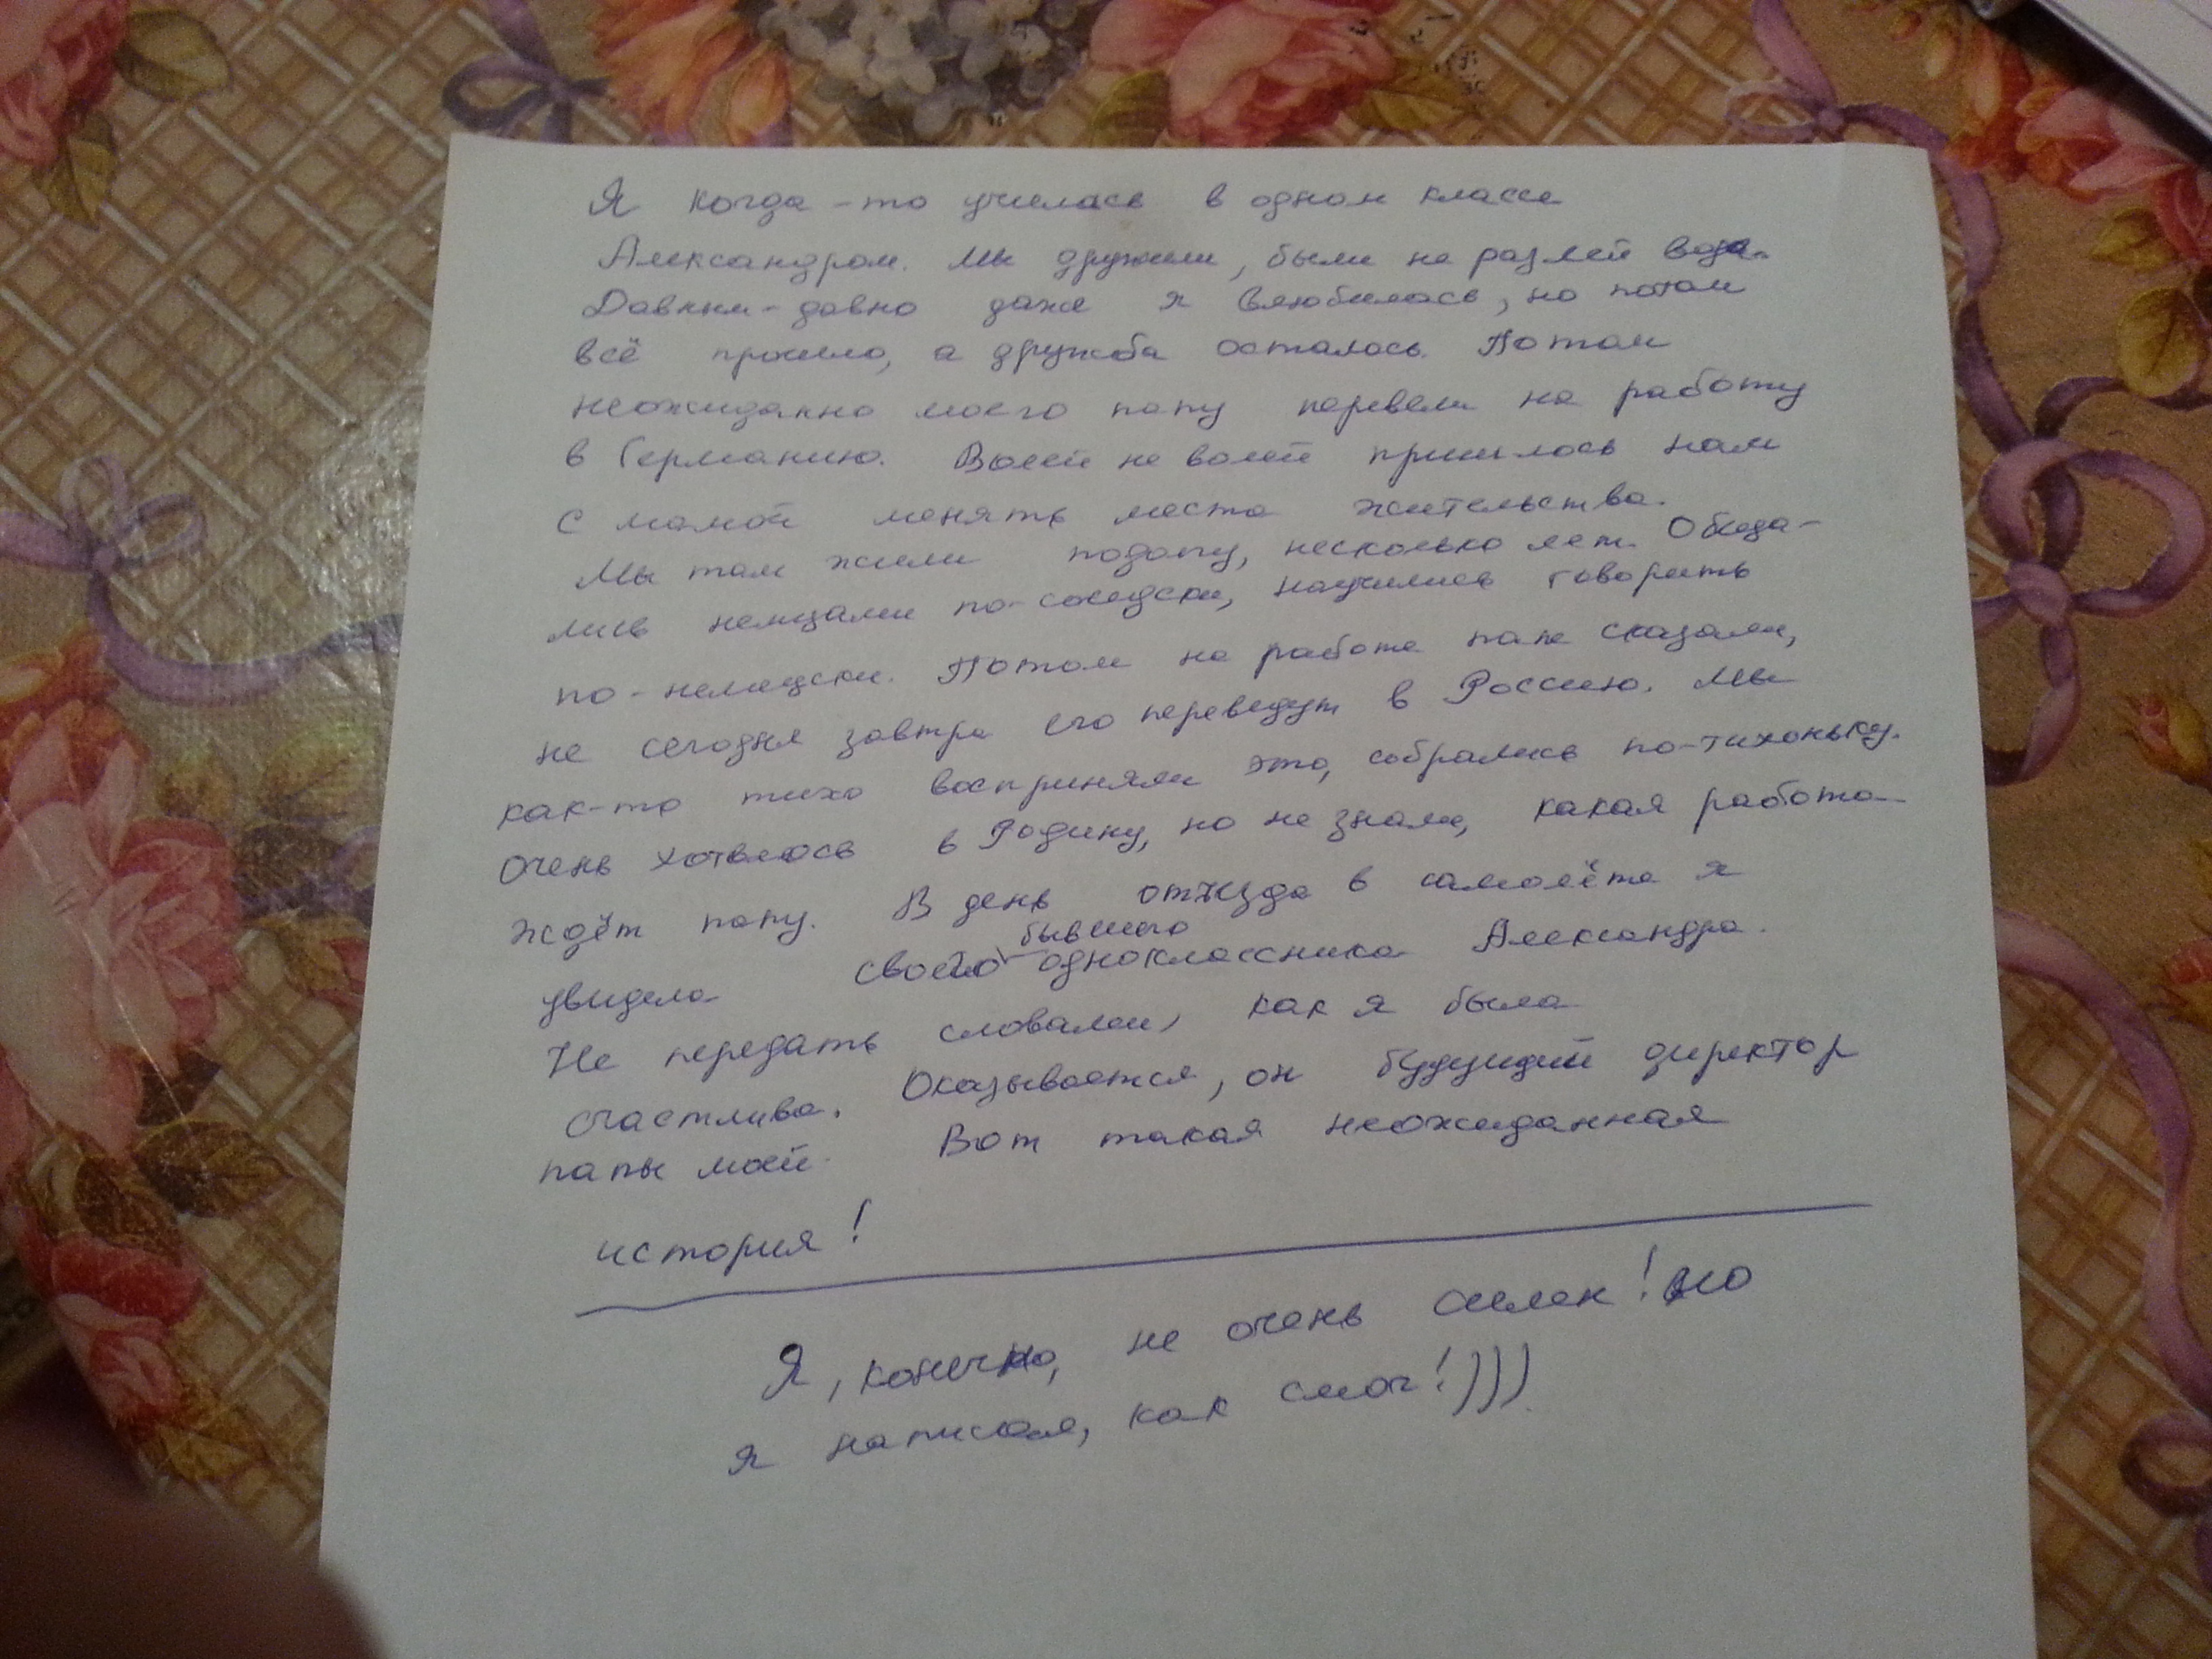 Я когда-то училась в одном классе
Александром. Мы дружили, были не разлей вода.
Давным-давно даже я влюбилась, но потом
всё прошло, а дружба осталась. Потом
неожиданно моего папу перевели на работу
в Германию. Волей не волей пришлось нам
с мамой менять места жительства.
Мы там жили подолгу, несколько лет. Обща-
лись немцами по-соседски, научились говорить
по-немецки. Потом на работе папе сказали,
не сегодня завтра его переведут в Россию. Мы
как-то тихо восприняли это, собрались по-тихоньку.
Очень хотелось в Родину, но не знали, какая работа
ждёт папу. В день отъезда в самолёте я
увидела своего бывшего одноклассника Александра.
Не передать словами, как я была
счастлива. Оказывается, он будущий директор
папы моей. Вот такая неожиданная
история!
Я, конечно, не очень силен! но
я написал, как смог!)))